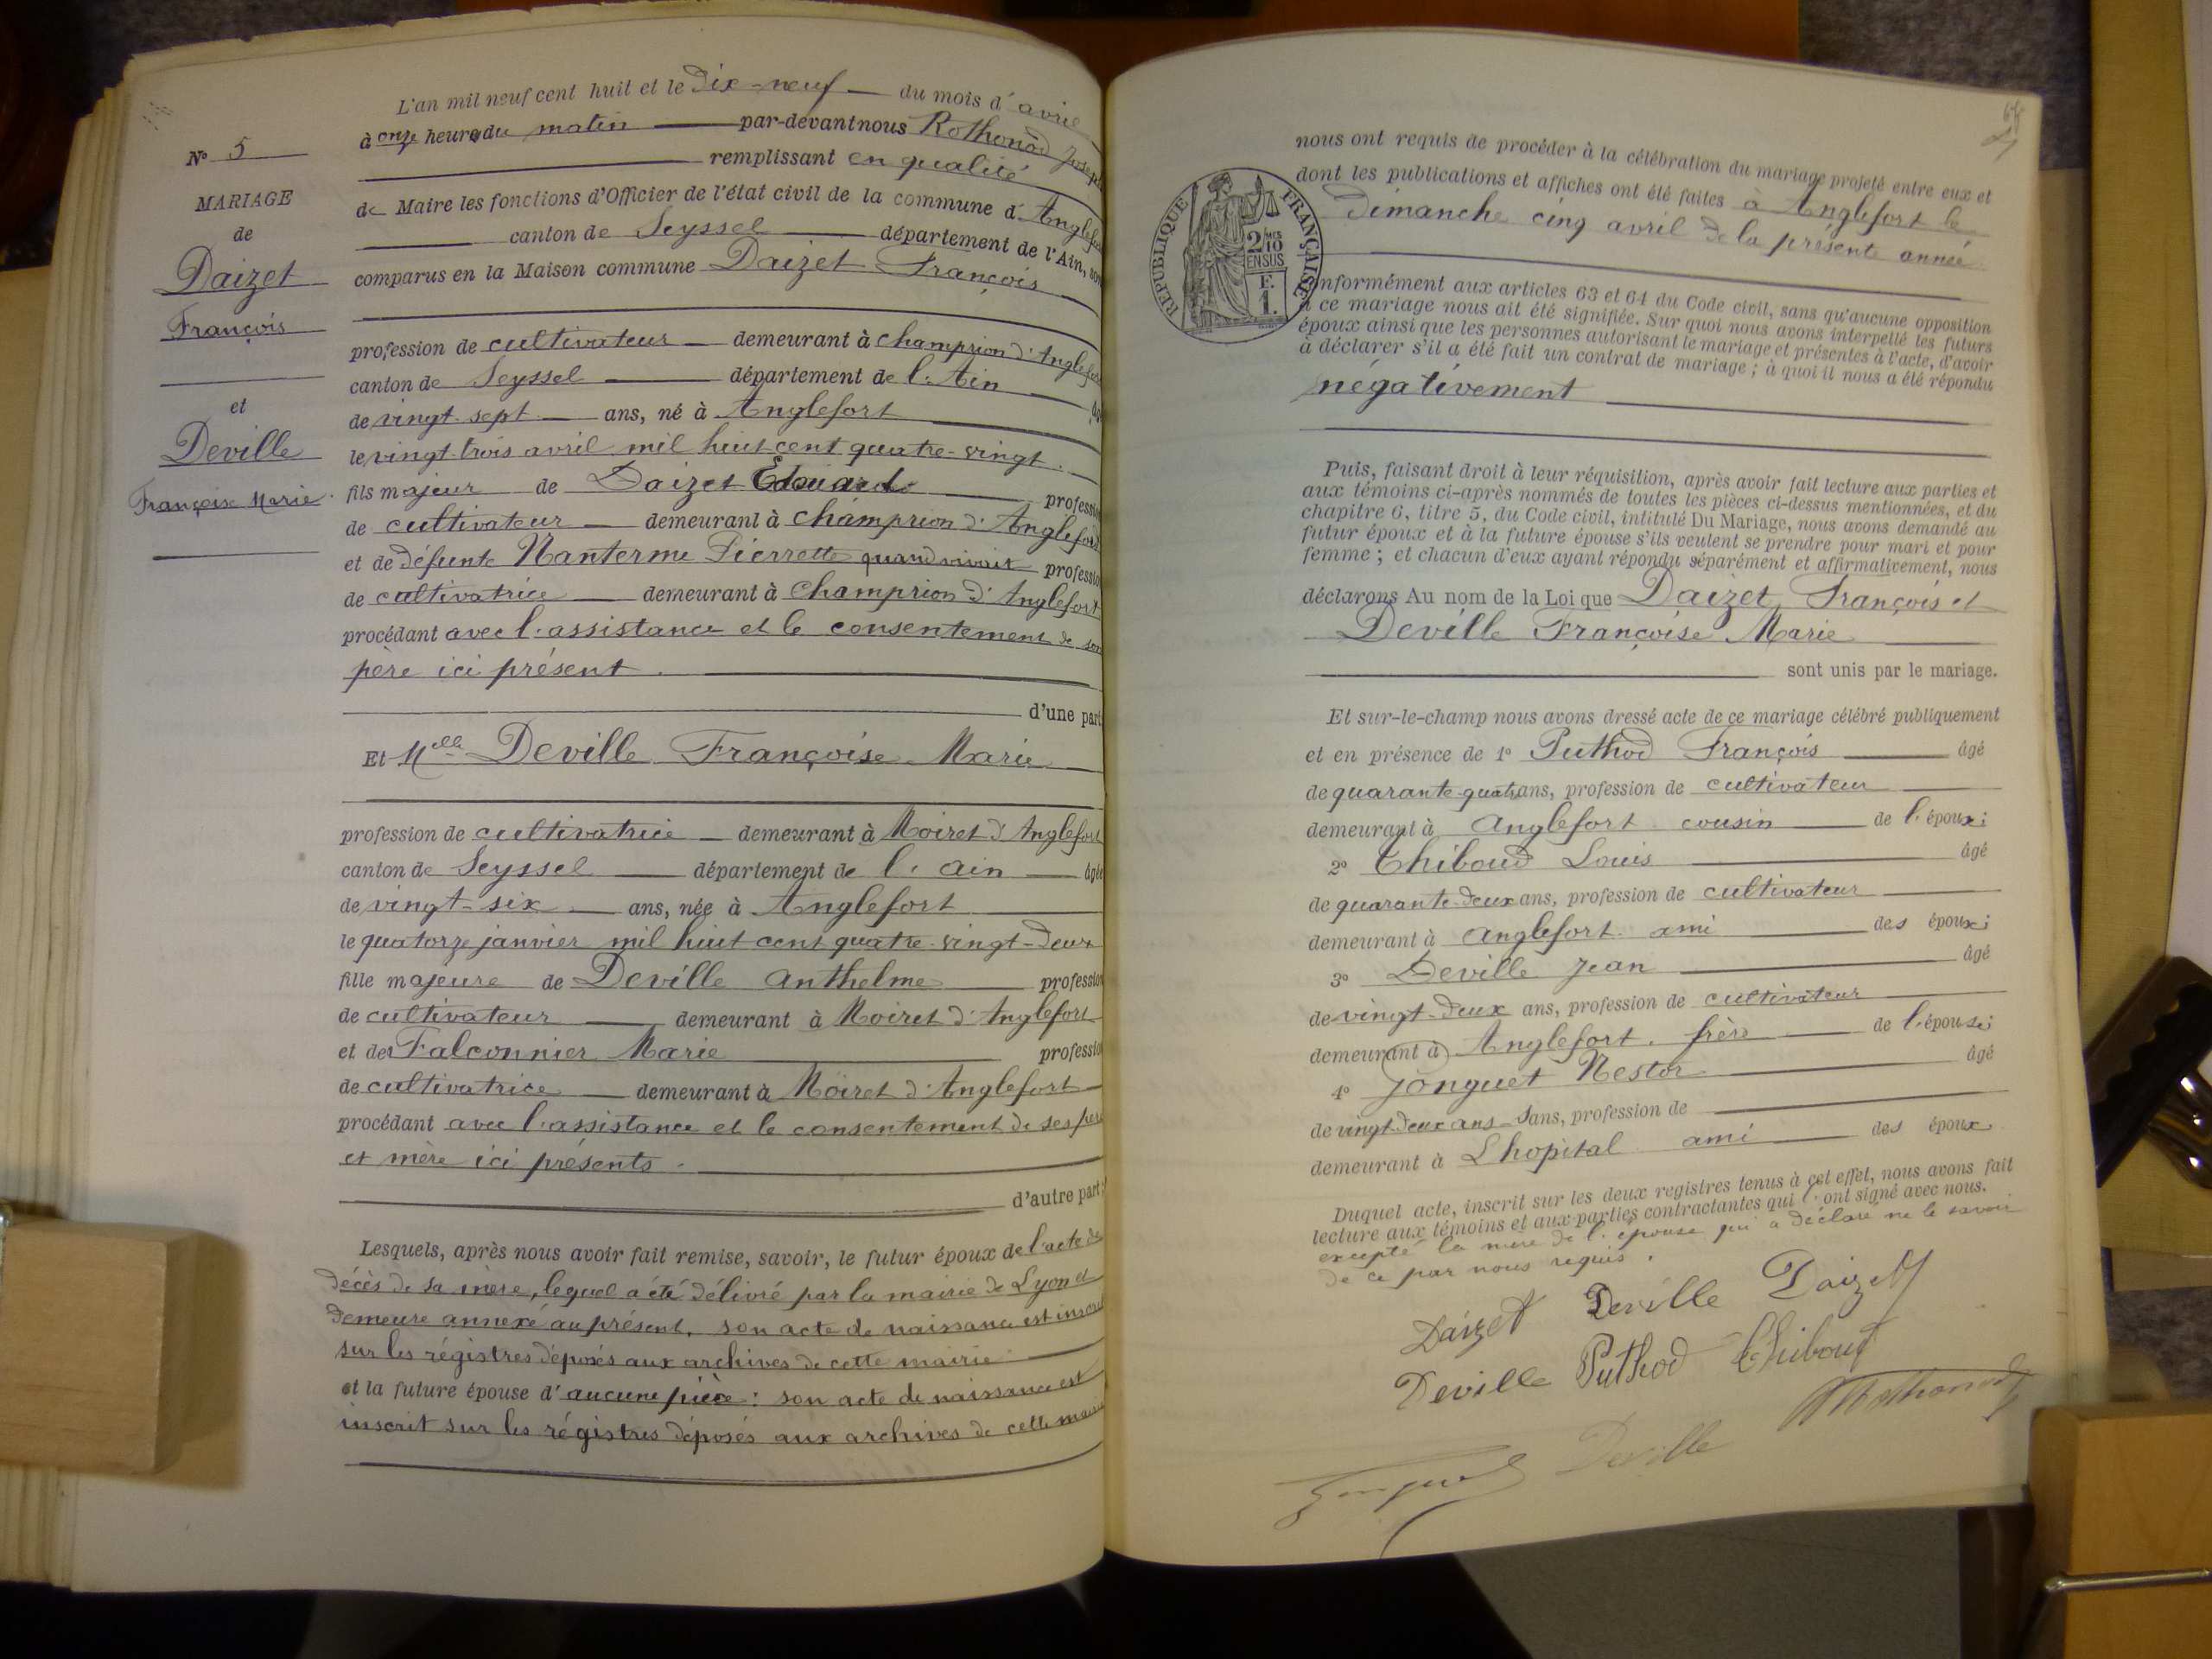 L'an mil neuf cent huit et le Dix-neuf du mois d'avril
à onze heures du matin par-devant nous Rothonod Joseph
N° 5
remplissant en qualité
MARIAGE
de Maire les fonctions d'Officier de l'état civil de la commune d'Anglefort
de
canton de Seyssel département de l'Ain, sont
Daizet
comparus en la Maison commune Daizet François
François
profession de cultivateur demeurant à Champrion d'Anglefort
canton de Seyssel département de l'Ain âgé
et
de vingt-sept ans, né à Anglefort
Deville
le vingt-trois avril mil huit cent quatre-vingt
Françoise Marie
fils majeur de Daizet Edouard profession
de cultivateur demeurant à Champrion d'Anglefort
et de défunte Nanterme Pierrette quand vivait profession
de cultivatrice demeurant à Champrion d'Anglefort
procédant avec l'assistance et le consentement de son
père ici présent
d'une part
Et Melle Deville Françoise Marie
profession de cultivatrice demeurant à Moiret d'Anglefort
canton de Seyssel département de l'Ain âgée
de vingt-six ans, née à Anglefort
le quatorze janvier mil huit cent quatre-vingt-deux
fille majeure de Deville Anthelme profession
de cultivateur demeurant à Moiret d'Anglefort
et de Falconnier Marie profession
de cultivatrice demeurant à Moiret d'Anglefort
procédant avec l'assistance et le consentement de ses père
et mère ici présents.
d'autre part;
Lesquels, après nous avoir fait remise, savoir, le futur époux de l'acte de
décès de sa mère, lequel a été délivré par la mairie de Lyon et
demeure annexé au présent, son acte de naissance est inscrit
sur les régistres déposés aux archives de cette mairie
et la future épouse d'aucune pièce: son acte de naissance est
inscrit sur les régistres déposés aux archives de cette mairie
nous ont requis de procéder à la célébration du mariage projeté entre eux et
dont les publications et affiches ont été faites à Anglefort le
dimanche cinq avril de la présente année
RÉPUBLIQUE FRANÇAISE
2/10 MES
EN SUS
F.
1.
conformément aux articles 63 et 64 du Code civil, sans qu'aucune opposition
à ce mariage nous ait été signifiée. Sur quoi nous avons interpellé les futurs
époux ainsi que les personnes autorisant le mariage et présentes à l'acte, d'avoir
à déclarer s'il a été fait un contrat de mariage; à quoi il nous a été répondu
négativement
Puis, faisant droit à leur réquisition, après avoir fait lecture aux parties et
aux témoins ci-après nommés de toutes les pièces ci-dessus mentionnées, et du
chapitre 6, titre 5, du Code civil, intitulé Du Mariage, nous avons demandé au
futur époux et à la future épouse s'ils veulent se prendre pour mari et pour
femme; et chacun d'eux ayant répondu séparément et affirmativement, nous
déclarons Au nom de la Loi que Daizet François et
Deville Françoise Marie
sont unis par le mariage.
Et sur-le-champ nous avons dressé acte de ce mariage célébré publiquement
et en présence de 1° Puthod François âgé
de quarante-quatre ans, profession de cultivateur
demeurant à Anglefort cousin de l'époux;
2° Thiboud Louis âgé
de quarante-deux ans, profession de cultivateur
demeurant à Anglefort ami des époux;
3° Deville Jean âgé
de vingt-deux ans, profession de cultivateur
demeurant à Anglefort. frère de l'épouse;
4° Jonguet Nestor âgé
de vingt-deux ans Sans, profession de
demeurant à Lhopital ami des époux.
Duquel acte, inscrit sur les deux registres tenus à cet effet, nous avons fait
lecture aux témoins et aux parties contractantes qui l'ont signé avec nous.
excepté la mère de l'épouse qui a déclaré ne le savoir
de ce par nous requis.
Daizet Deville Daizet
Deville Puthod Thiboud
Rothonod
Jonguet Deville